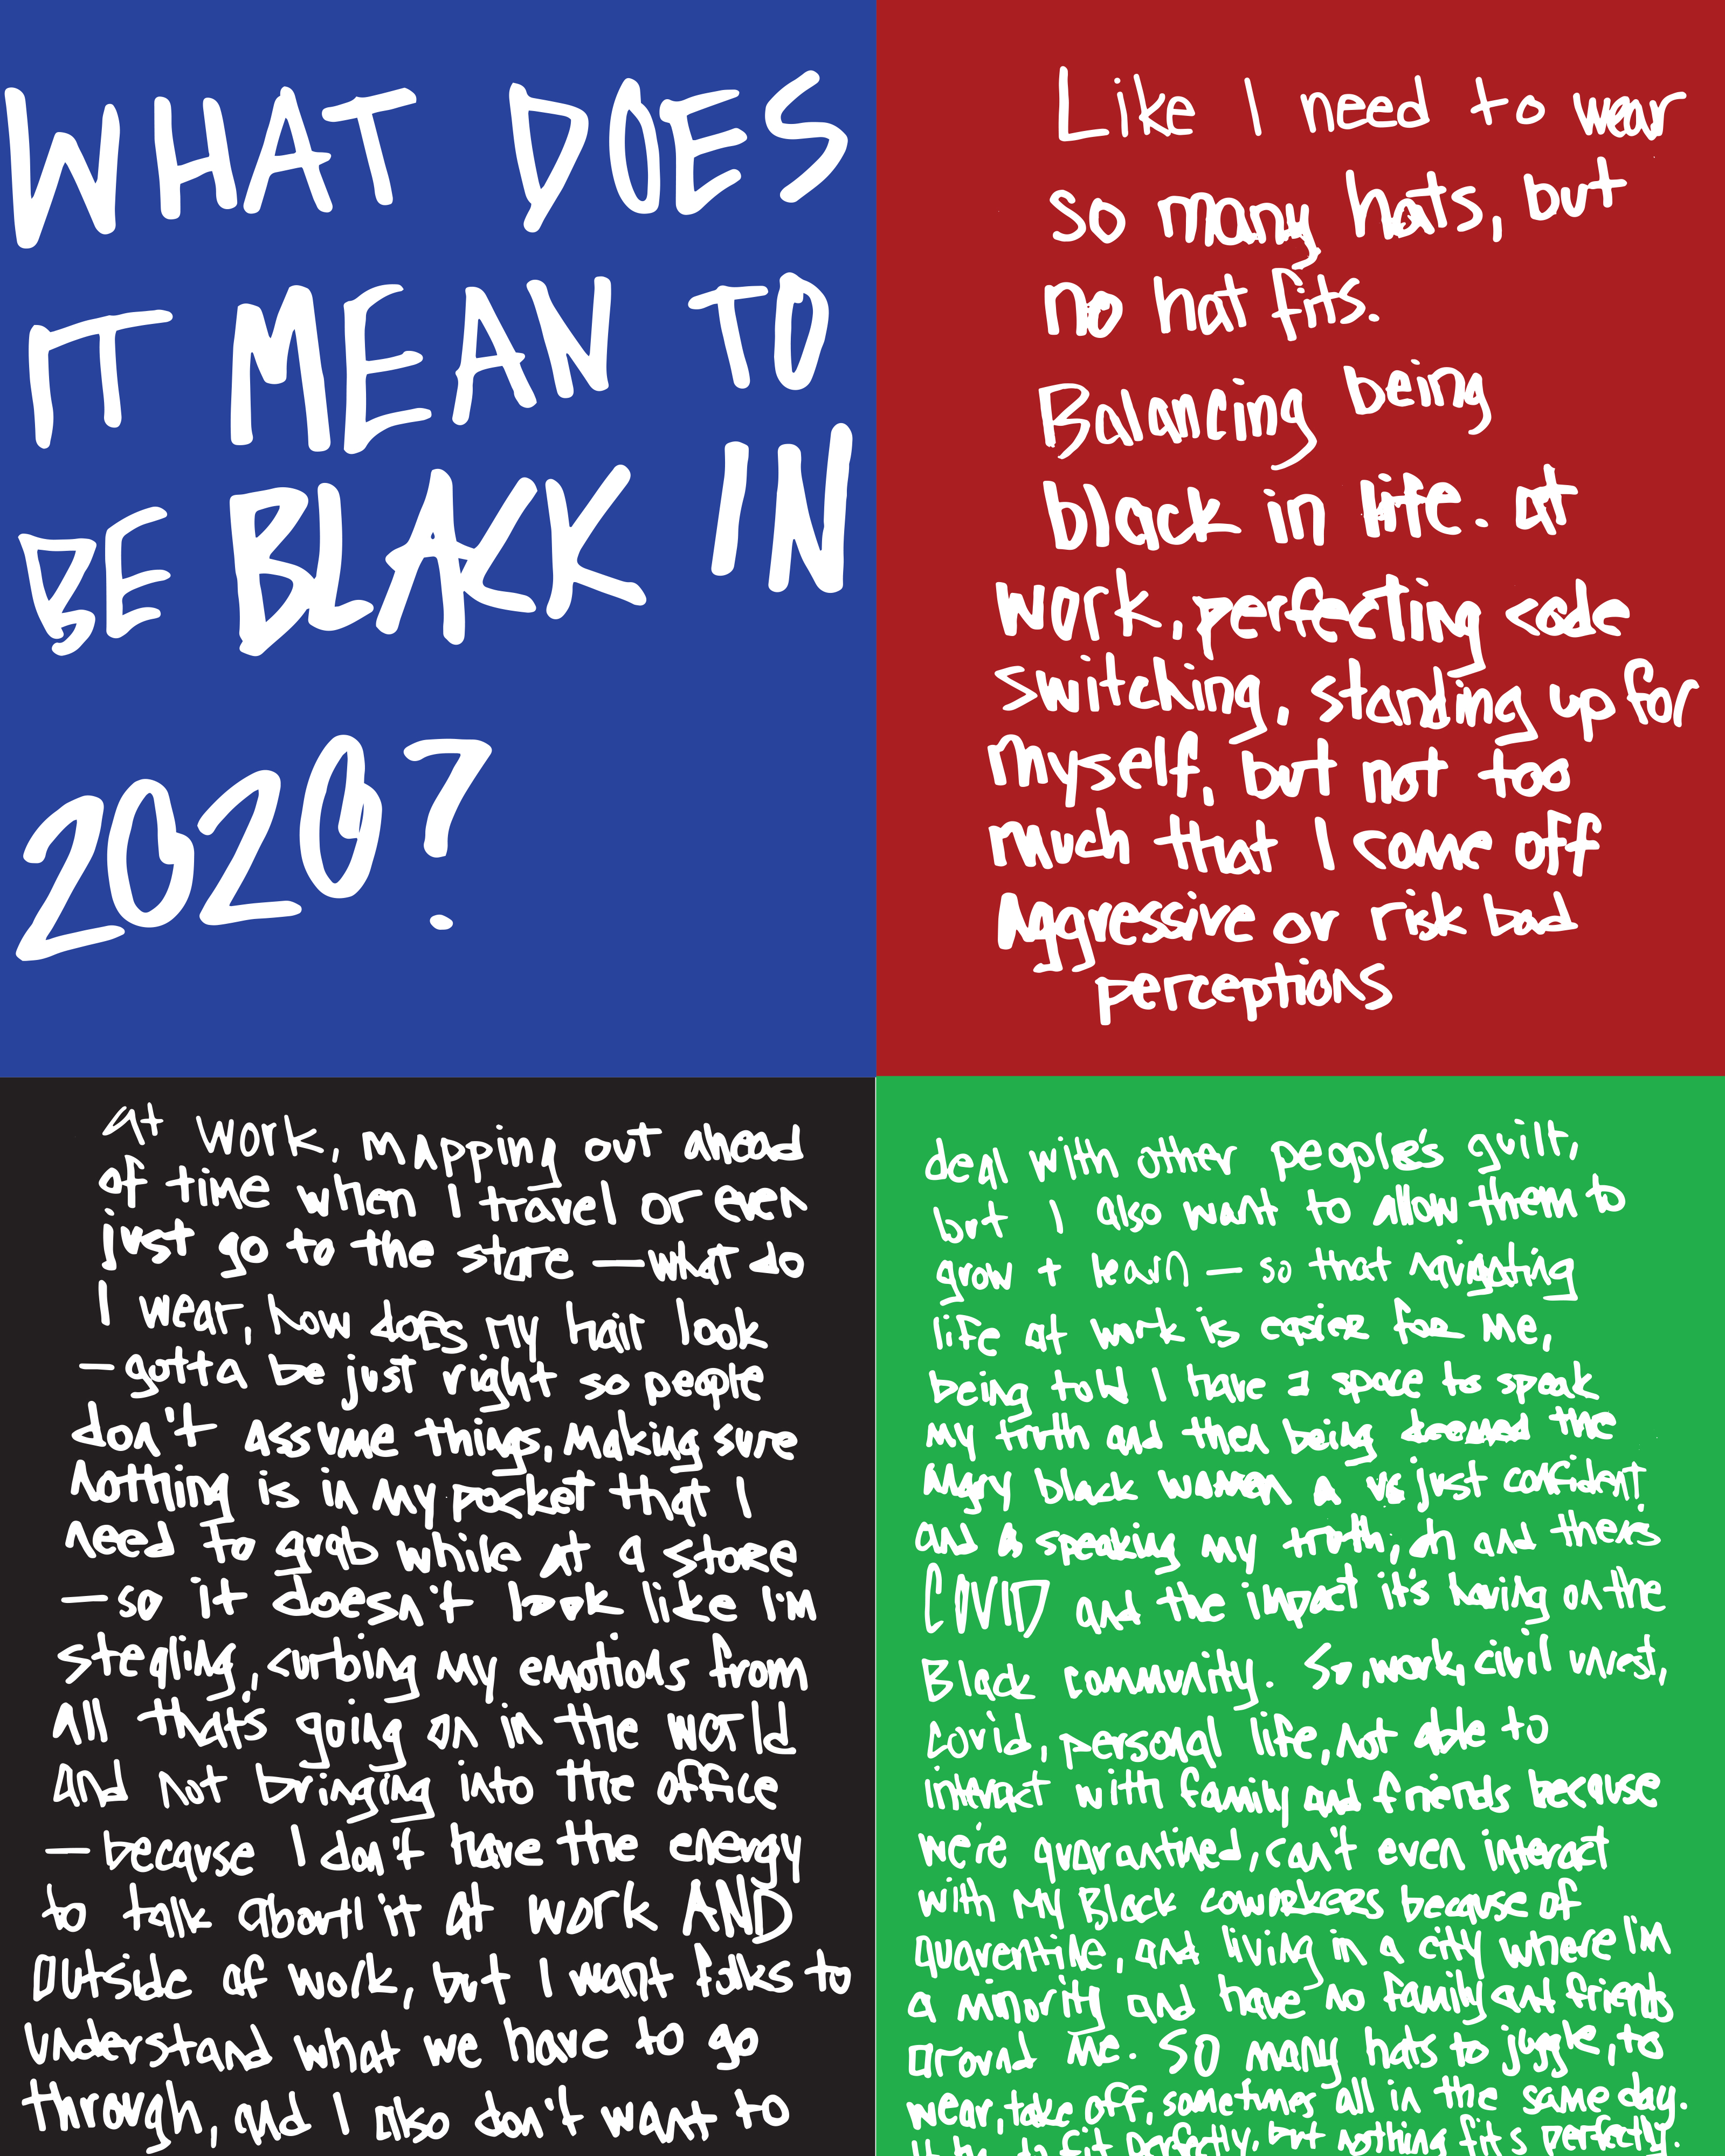 WHAT DOES
IT MEAN TO
BE BLACK IN
2020?
Like I need to wear
so many hats, but
no hat fits.
Balancing being
black in life. at
work, perfecting code
switching, standing up for
myself, but not too
much that I come off
Aggressive or risk bad
perceptions
At work, mapping out ahead
of time when I travel or even
just go to the store — what do
I wear, how does my hair look
— gotta be just right so people
don't assume things, making sure
nothing is in my pocket that I
need to grab while at a store
— so it doesn't look like I'm
stealing, curbing my emotions from
all that's going on in the world
and not bringing into the office
— because I don't have the energy
to talk about it at work AND
outside of work, but I want folks to
understand what we have to go
through, and I also don't want to
deal with other people's guilt,
but I also want to allow them to
grow + learn — so that navigating
life at work is easier for me,
being told I have a space to speak
my truth and then being deemed the
angry black women vs just confident
and speaking my truth, oh and there's
COVID and the impact it's having on the
Black community. So, work, civil unrest,
Covid, personal life, not able to
interact with family and friends because
we're quarantined, can't even interact
with my Black coworkers because of
quarentine, and living in a city where I'm
a minority and have no family and friends
around me. SO many hats to juggle, to
wear, take off, sometimes all in the same day.
to fit perfectly, but nothing fits perfectly.